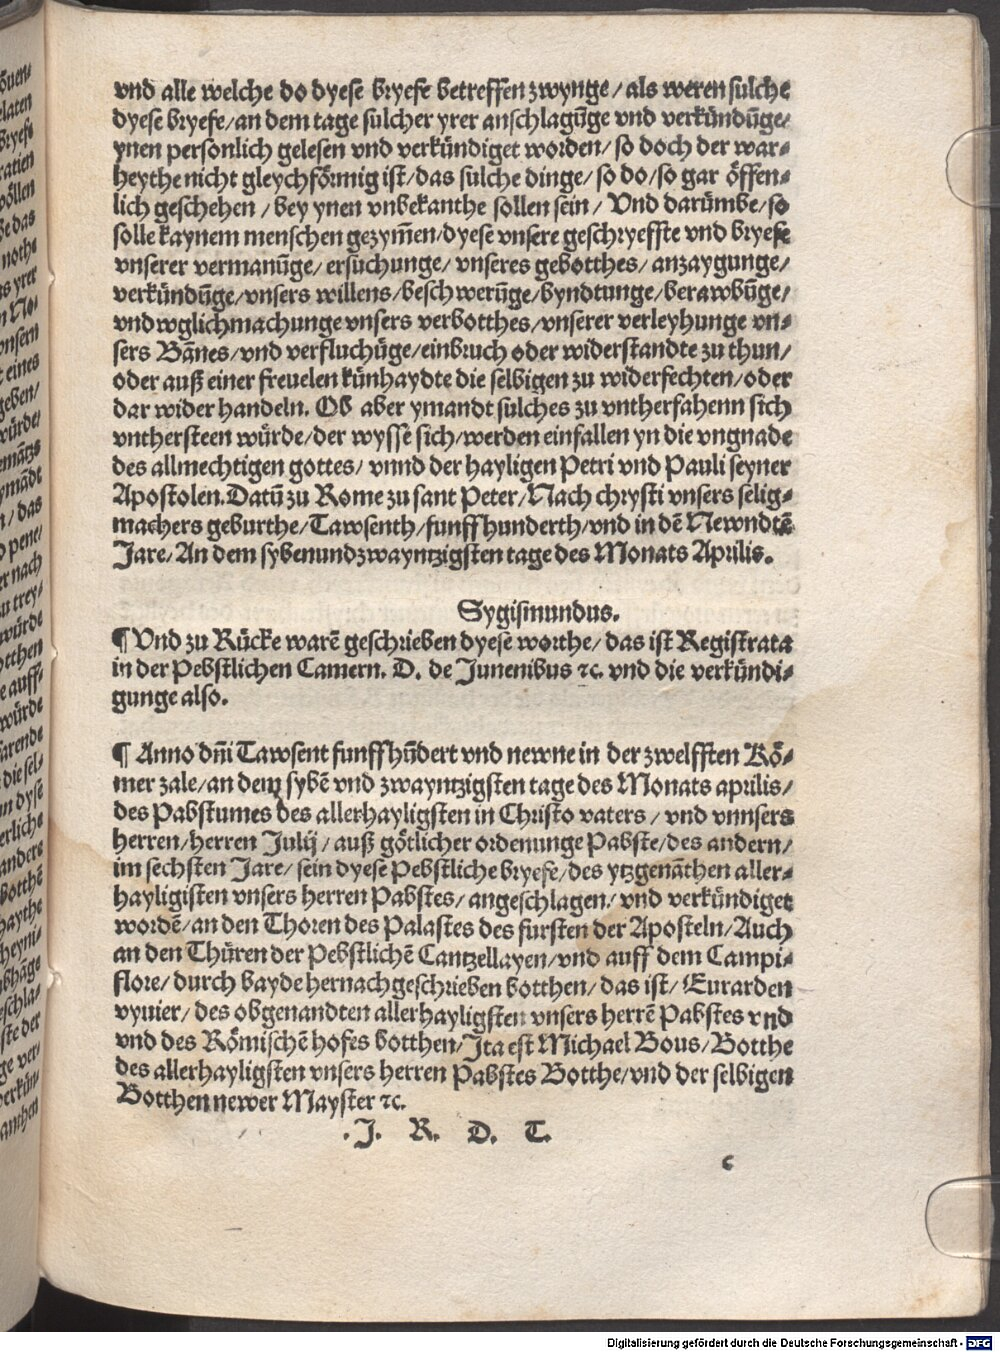 vnd alle welche do dyese bryefe betreffen zwynge/ als weren sulche
dyese bryefe/an dem tage sulcher yrer anschlagūge vnd verkündūge/
ynen personlich gelesen vnd verkündiget worden/ so doch der war⸗
heythe nicht gleychförmig ist/das sulche dinge/ so do/so gar öffen⸗
lich geschehen / bey ynen vnbekanthe sollen sein / Vnd darümbe/so
solle kaynem menschen gezym̄en/dyese vnsere geschryeffte vnd bryefe
vnserer vermanūge/ ersuchunge/ vnseres gebotthes/ anzaygunge/
verkündūge/vnsers willens/beschwerūge/byndtunge/berawbūge/
vnd wglichmachunge vnsers verbotthes/vnserer verleyhunge vn⸗
sers Bānes/vnd verfluchūge/einbruch oder widerstandte zu thun/
oder auß einer freuelen künhaydte die selbigen zu widerfechten/oder
dar wider handeln. Ob aber ymandt sulches zu vntherfahenn sich
vnthersteen würde/der wysse sich/werden einfallen yn die vngnade
des allmechtigen gottes/ vnnd der hayligen Petri vnd Pauli seyner
Apostolen.Datū zu Rome zu sant Peter/Nach chrysti vnsers selig⸗
machers geburthe/Tawsenth/funffhunderth/vnd in dē Newndtē
Jare/An dem sybenundzwayntzigsten tage des Monats Aprilis.
Sygismundus.
¶ Vnd zu Rücke warē geschrieben dyese worthe/das ist Registrata
in der Pebstlichen Camern. D. de Junenibus ⁊c. vnd die verkündi⸗
gunge also.
¶ Anno dn̄i Tawsent funffhūdert vnd newne in der zwelfften Rö⸗
mer zale/an dem sybē vnd zwayntzigsten tage des Monats aprilis/
des Pabstumes des allerhayligsten in Christo vaters / vnd vnnsers
herren/herren Julij / auß götlicher ordenunge Pabste/des andern/
im sechsten Jare/ sein dyese Pebstliche bryefe/des ytzgenāthen aller⸗
hayligisten vnsers herren Pabstes/ angeschlagen/ vnd verkündiget
wordē/an den Thoren des Palastes des fursten der Aposteln/Auch
an den Thüren der Pebstlichē Cantzellayen/vnd auff dem Campi⸗
flore/ durch bayde hernach geschrieben botthen/ das ist/ Eurarden
vyuier/ des obgenandten allerhayligsten vnsers herrē Pabstes vnd
vnd des Römischē hofes botthen/Ita est Michael Bous/Botthe
des allerhayligsten vnsers herren Pabstes Botthe/vnd der selbigen
Botthen newer Mayster ⁊c.
.J. R. D. T.
c
Digitalisierung gefördert durch die Deutsche Forschungsgemeinschaft - DFG